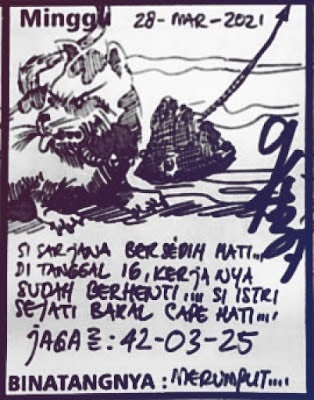 Minggu 28-MAR-2021
SI SARJANA BERSEDIH HATI....
DI TANGGAL 16, KERJANYA
SUDAH BERHENTI .... SI ISTRI
SEJATI BAKAL CAPE HATI....
JAGA2 : 42-03-25
BINATANGNYA : MERUMPUT....